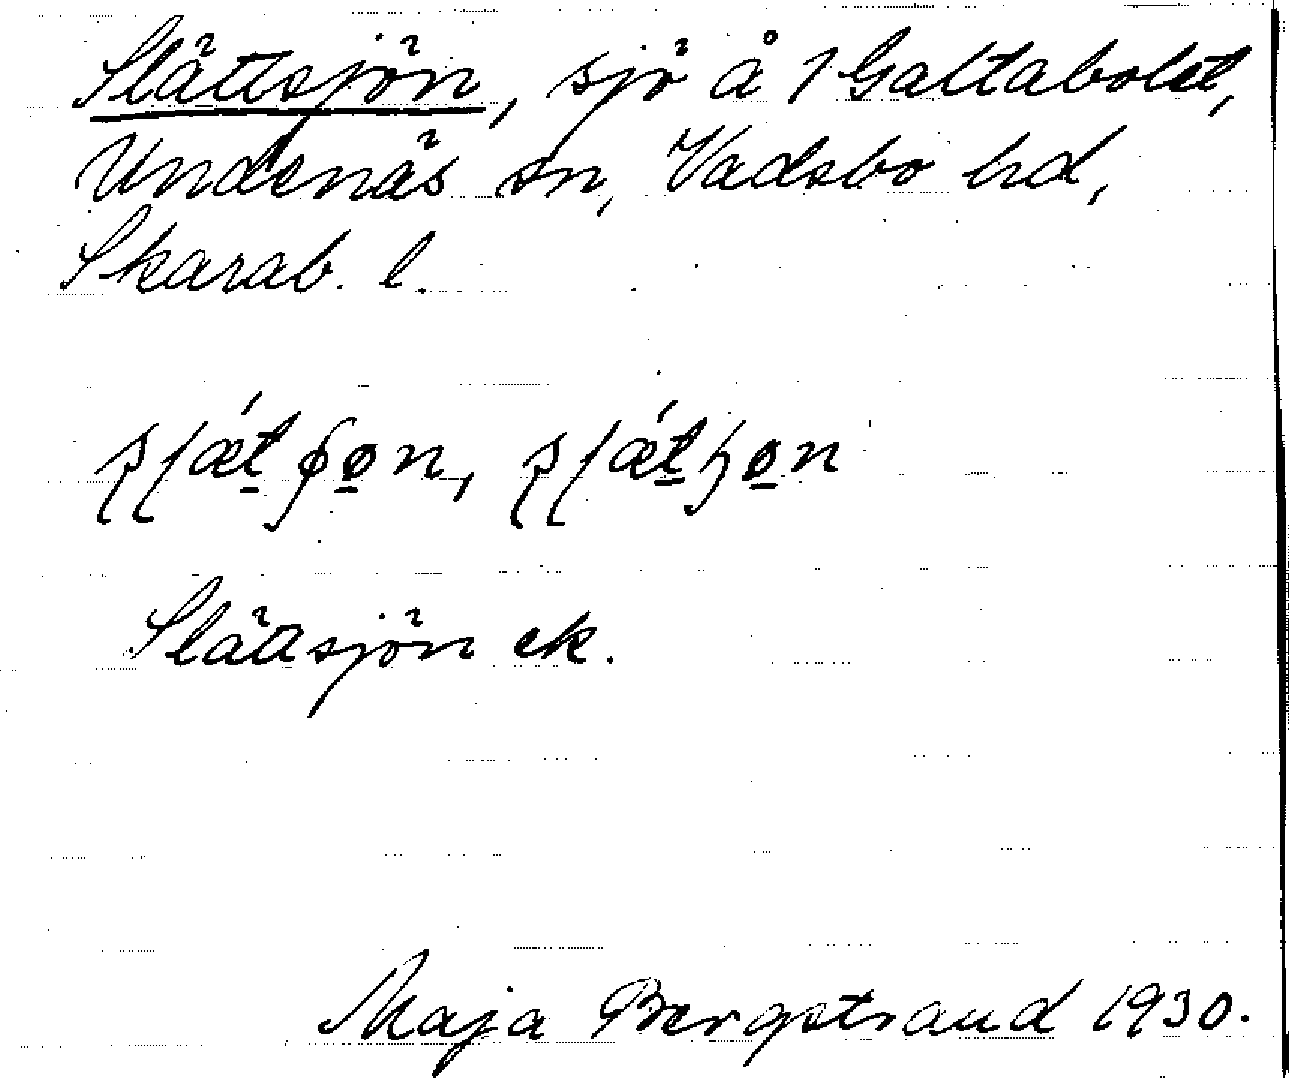 Slättsjön, sjö å 1 Galtabolet,
Undenäs sn, Vadsbo hd,
Skarab. l.
Slättsjön ek.
Maja Bergstrand 1930.